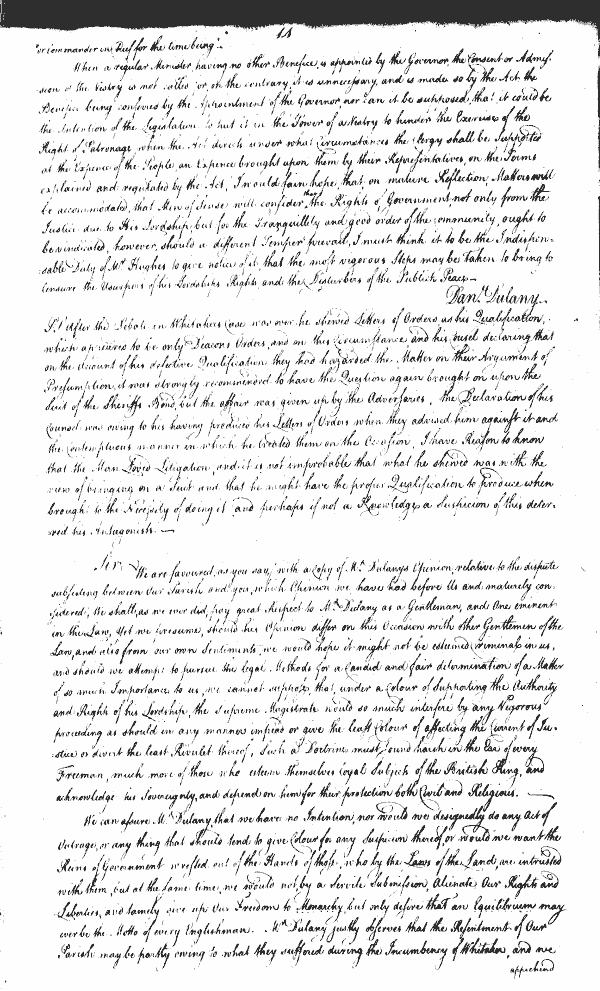 14
"or Commander in Chief for the time being".
When a regular Minister, having no other Benefice, is appointed by the Governor, the Consent or Admis-
sion of the Vestry is not called for, on the contrary, it is unnecessary, and is made so by the Act, the
Benefice being conferred by the Appointment of the Governor, nor can it be supposed, that it could be
the Intention of the Legislature to put it in the Power of a Vestry to hinder the Exercise of the
Right of Patronage, when the Act directs under what Circumstances the Clergy shall be Supported
at the Expence of the People, an Expence brought upon them by their Representatives, on the Terms
explained and regulated by the Act, I would fain hope that, on mature Reflection Matters will
be accommodated, that Men of Sense will consider, that the Rights of Government not only from the
Justice due to His Lordship, but for the Tranquillity and good order of the Community, ought to
be vindicated, however, should a different Temper prevail, I must think it to be the Indispen-
sable Duty of Mr. Hughes to give notice of it, that the most vigorous Steps may be taken to bring to
Censure the Usurpers of his Lordships Rights and the Disturbers of the Publick Peace.
Danl. Dulany
P.S. After the Debate in Whitakers Case was over he shewed Letters of Orders as his Qualification,
which appeared to be only Deacons Orders, and on this Circumstance and his Counsel declaring that
on the Account of his defective Qualification they had hazarded the Matter on their Argument of
Presumption, it was strongly recommended to have the Question again brought on upon the
Suit of the Sheriffs Bond, but the affair was given up by the Adversaries, the Declaration of his
Counsel was owing to his having produced his Letters of Orders when they advised him against it and
the Contemptuous manner in which he treated them on the Occasion, I have Reason to know
that the Man Loved Litigation, and it is not improbable that what he shewed was with the
view of bringing on a Suit and that he might have the proper Qualification to produce when
brought to the Necessity of doing it and perhaps if not a Knowledge, a Suspicion of this deter-
red his Antagonists.
Sir, We are favoured, as you say, with a Copy of Mr. Dulanys Opinion, relative to the dispute
subsisting between Our Parish and you, which Opinion we have had before Us and maturely con-
sidered, We shall, as we ever did, pay great Respect to Mr. Dulany as a Gentleman, and One eminent
in the Law, Yet we presume, should his Opinion differ on this Occasion with other Gentlemen of the
Law, and also from our own Sentiments, we would hope it might not be esteemed criminal in us,
and should we attempt to pursue the legal Methods for a Candid and fair determination of a Matter
of so much Importance to us, we cannot suppose that, under a Colour of Supporting the Authority
and Right of his Lordship, the Supreme Magistrate would so much interfere by any Vigorous
proceeding as should in any manner impead or give the least Colour of affecting the Current of Jus-
tice or divert the least Rivulet thereof, Such a Doctrine must sound harsh in the Ear of every
Freeman, much more of those who esteem themselves loyal Subjects of the British King, and
acknowledge his Sovereignty, and depend on him for their protection both Civil and Religious.
We can assure Mr. Dulany that we have no Intention, nor would we designedly do any Act of
Outrage, or any thing that should tend to give Colour for any Suspicion thereof, or would we want the
Reins of Government wrested out of the Hands of those, who by the Laws of the Land, are intrusted
with them, but at the same time, we would not by a Servile Submission, Alienate Our Rights and
Liberties, and tamely give up Our Freedom to Monarchy, but only desire that an Equilibrium may
ever be the Motto of every Englishman. Mr. Dulany justly observes that the Resentment of Our
Parish may be partly owing to what they suffered during the Incumbency of Whitaker, and we
apprehend